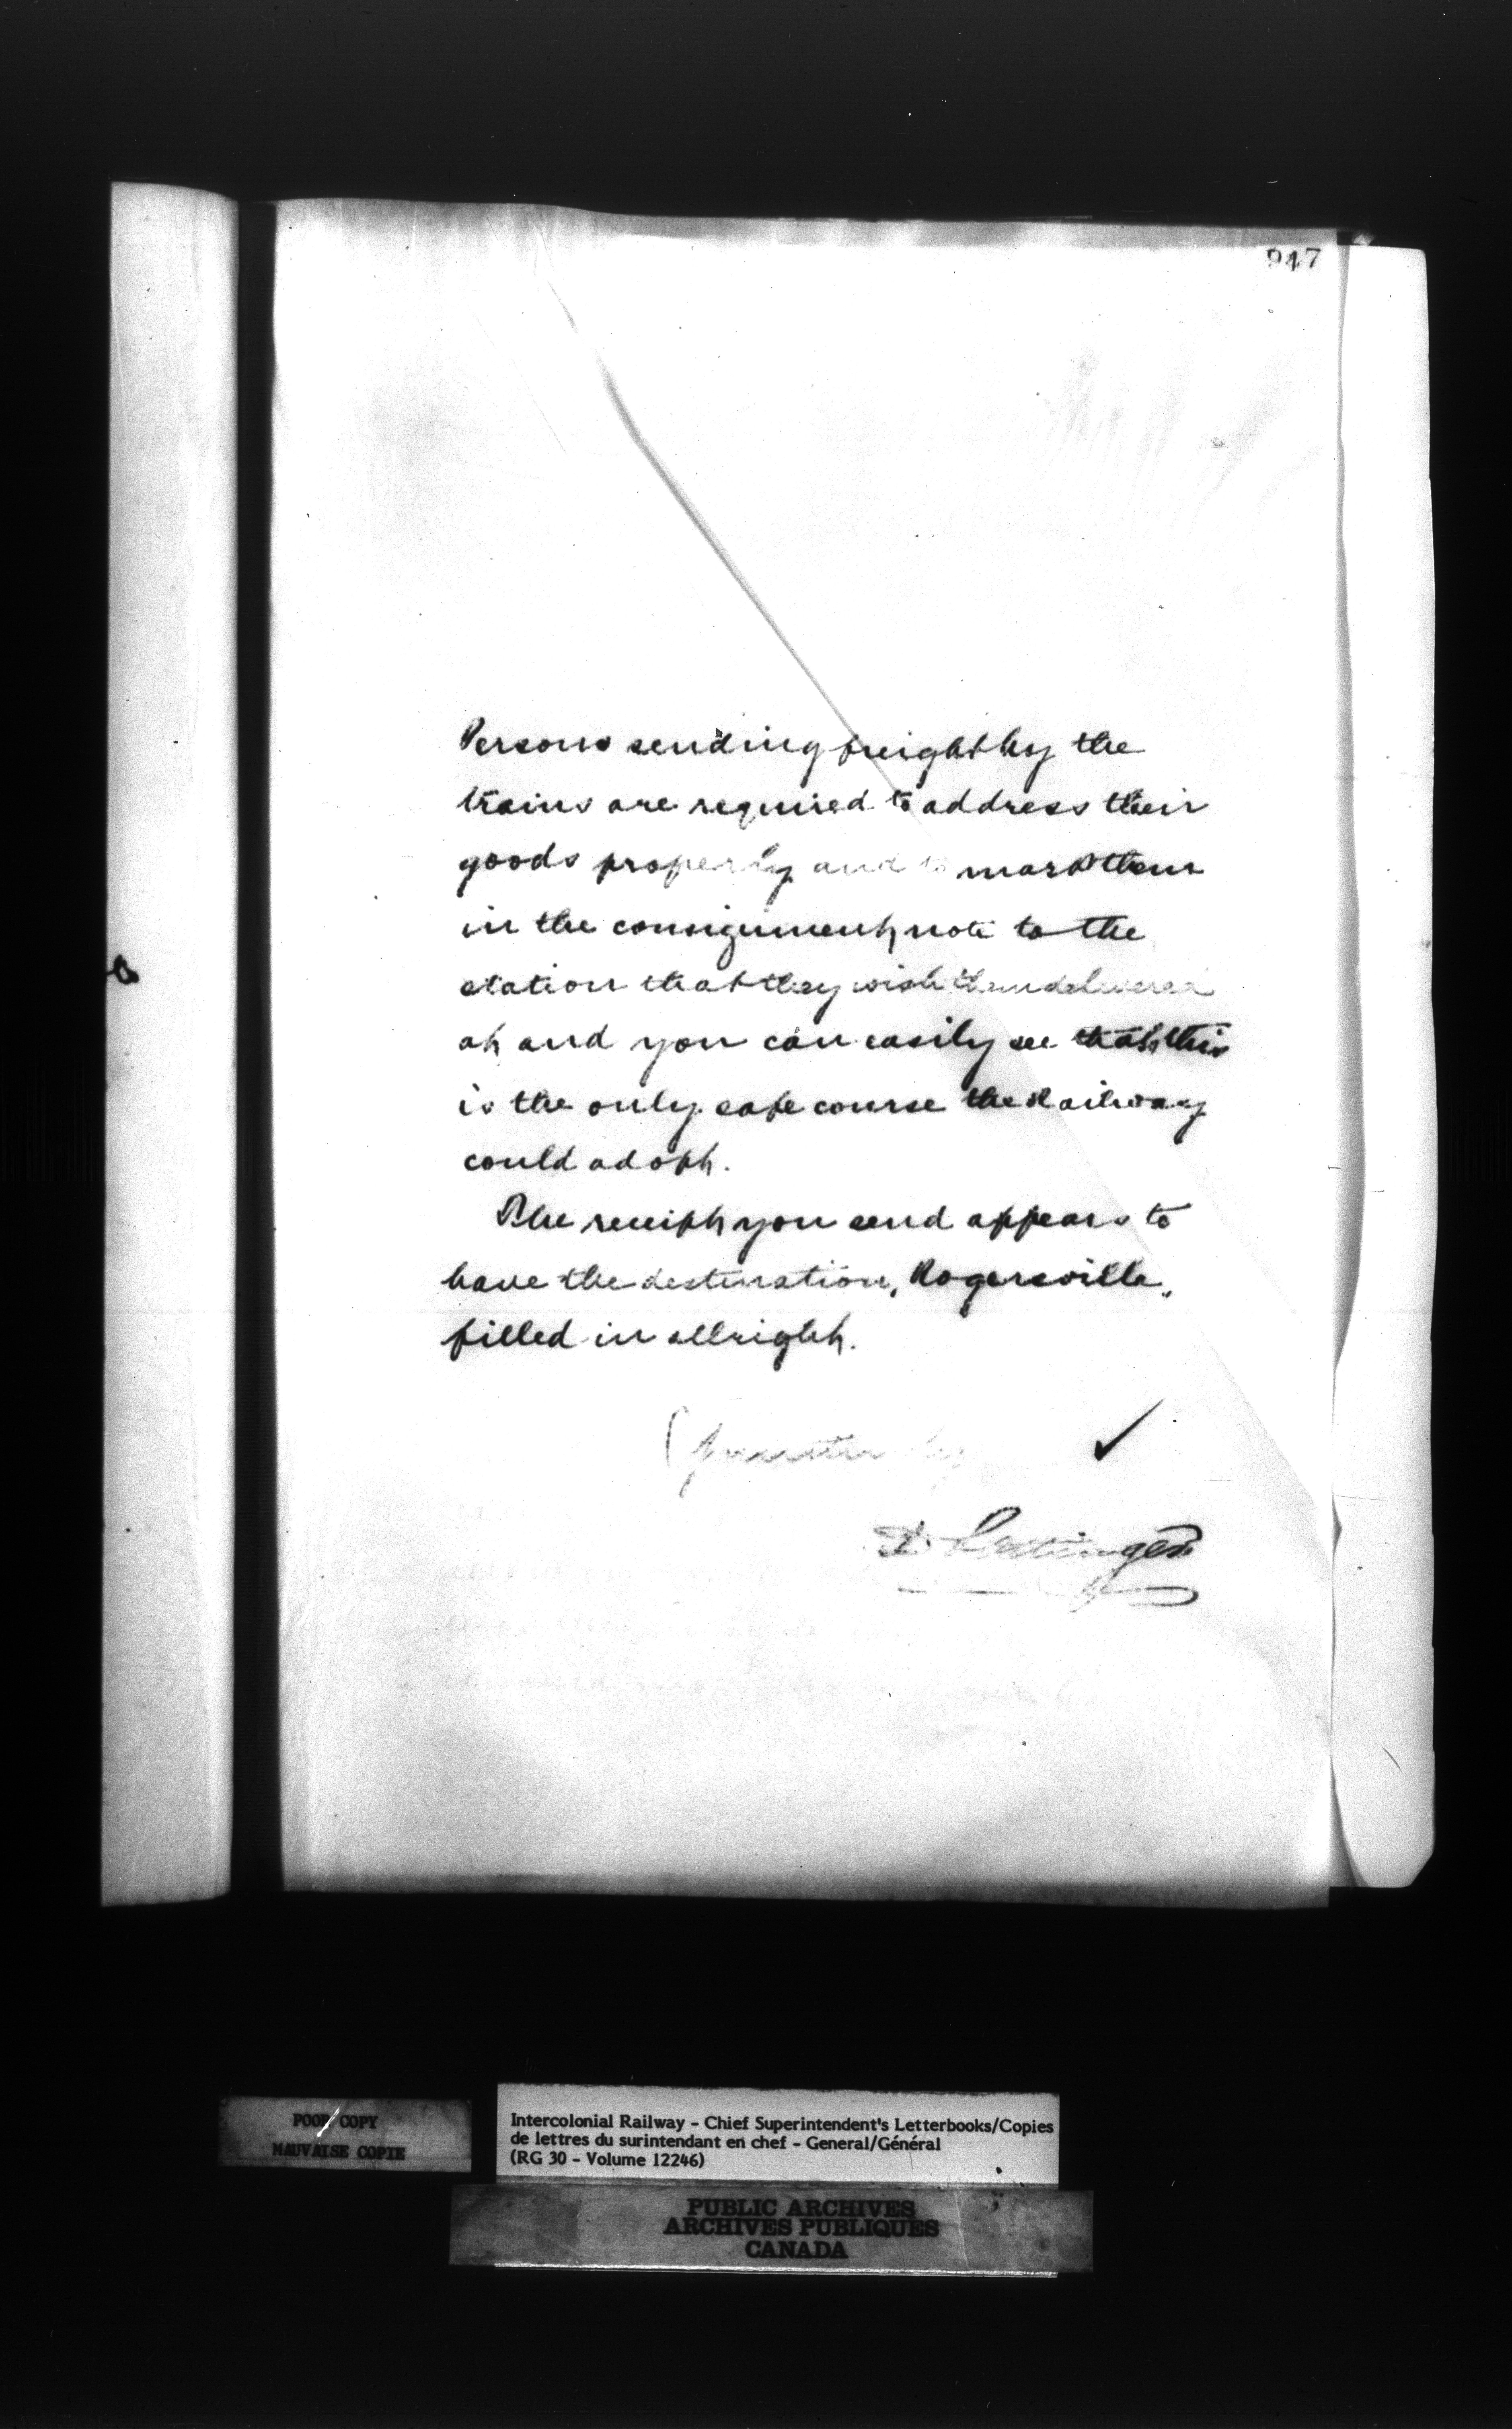 947
Persons sending freight by the
trains are required to address their
goods properly and to mark them
in the consignment note to the
station that they wish them delivered
at and you can easily see that this
is the only safe course the Railway
could adopt.
The receipt you send appears to
have the destination, Rogersville,
filled in allright.
D Pottinger
POOR COPY
MAUVAISE COPIE
Intercolonial Railway - Chief Superintendent's Letterbooks/Copies
de lettres du surintendant en chef - General/Général
(RG 30 - Volume 12246)
PUBLIC ARCHIVES
ARCHIVES PUBLIQUES
CANADA